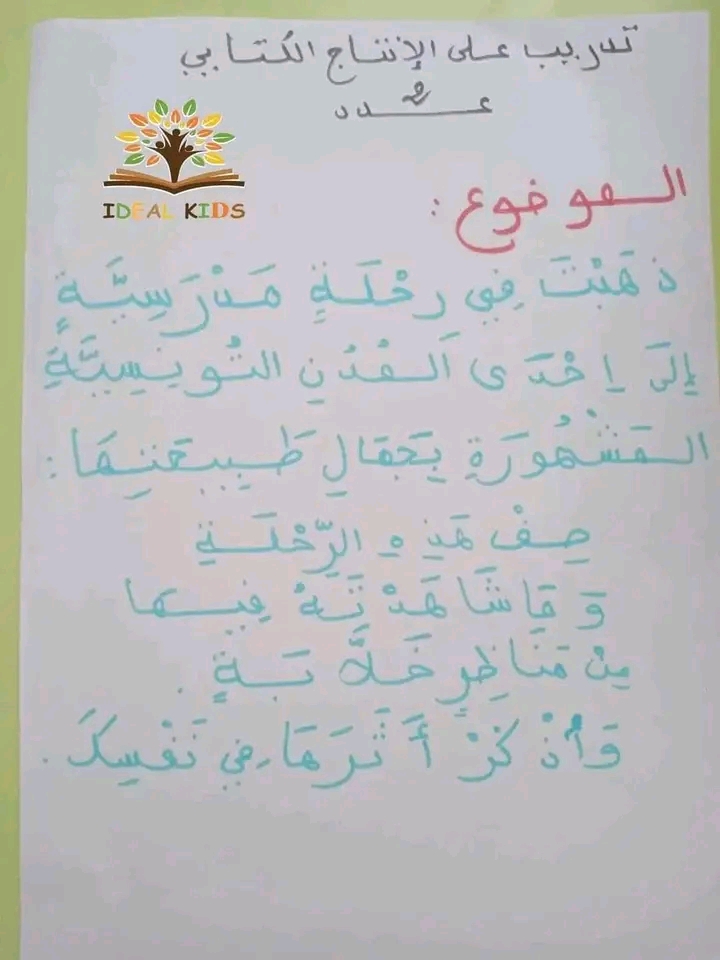 تدريب على الإنتاج الكتابي
عـــدد 2
IDEAL KIDS
الـموضوع :
ذَهَبْتَ فِي رِحْلَةٍ مَدْرَسِيَّةٍ
إِلَى إِحْدَى الْمُدُنِ التُّونِسِيَّةِ
الْمَشْهُورَةِ بِجَمَالِ طَبِيعَتِهَا :
صِفْ هَذِهِ الرِّحْلَةِ
وَمَا شَاهَدْتَهُ فِيهَا
مِنْ مَنَاظِرٍ خَلَّابَةٍ .
وَاُذْكُرْ أَثَرَهَا فِي نَفْسِكَ .